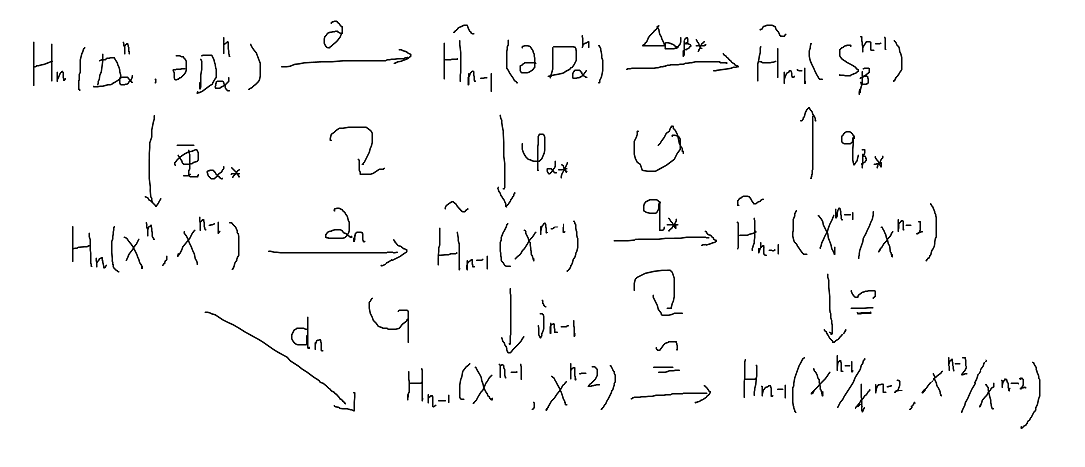 Hₙ(Dⁿ_α, ∂Dⁿ_α) ∂ H̃ₙ₋₁(∂Dⁿ_α) Δ_αβ* H̃ₙ₋₁(Sⁿ⁻¹_β)
Φ_α* φ_α* q_β*
Hₙ(Xⁿ, Xⁿ⁻¹) ∂ₙ H̃ₙ₋₁(Xⁿ⁻¹) q* H̃ₙ₋₁(Xⁿ⁻¹/Xⁿ⁻²)
dₙ jₙ₋₁ ≅
Hₙ₋₁(Xⁿ⁻¹, Xⁿ⁻²) ≅ Hₙ₋₁(Xⁿ⁻¹/Xⁿ⁻², Xⁿ⁻²/Xⁿ⁻²)